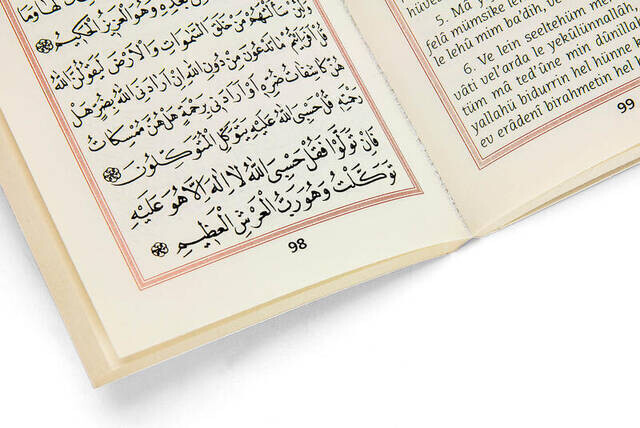 لَهَا وَمَا
بَعْدِهِ وَهُوَ الْعَزِيزُ الْحَكِيمُ
وَلَئِنْ سَاَلْتَهُمْ مَنْ خَلَقَ السَّمٰوَاتِ وَالْاَرْضَ لَيَقُولُنَّ اللّٰهُ
قُلْ اَفَرَاَيْتُمْ مَا تَدْعُونَ مِنْ دُونِ اللّٰهِ اِنْ اَرَادَنِيَ اللّٰهُ بِضُرٍّ هَلْ
هُنَّ كَاشِفَاتُ ضُرِّهِ اَوْ اَرَادَنِي بِرَحْمَةٍ هَلْ هُنَّ مُمْسِكَاتُ
رَحْمَتِهِ قُلْ حَسْبِيَ اللّٰهُ عَلَيْهِ يَتَوَكَّلُ الْمُتَوَكِّلُونَ
فَاِنْ تَوَلَّوْا فَقُلْ حَسْبِيَ اللّٰهُ لَا اِلٰهَ اِلَّا هُوَ عَلَيْهِ
تَوَكَّلْتُ وَهُوَ رَبُّ الْعَرْشِ الْعَظِيمِ
98
5. Mâ
felâ mümsike
le lehü mim ba'dih, ve
6. Ve lein seeltehüm
vâti vel'arda le yekûlünnallâh,
tüm mâ ted'ûne min dûnilla
yallahü bidurrin hel hünne
ev erâdenî birahmetin hel
99